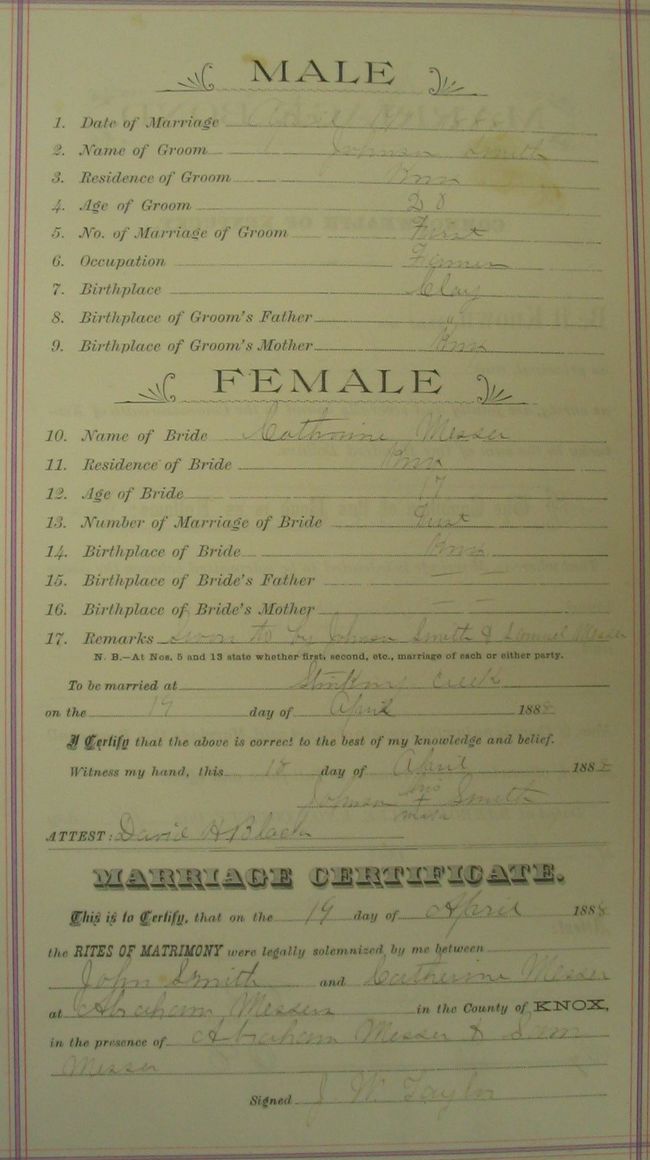 MALE
1. Date of Marriage April 19
2. Name of Groom Johnson Smith
3. Residence of Groom Knox
4. Age of Groom 28
5. No. of Marriage of Groom First
6. Occupation Farmer
7. Birthplace Clay
8. Birthplace of Groom's Father "
9. Birthplace of Groom's Mother Knox
FEMALE
10. Name of Bride Catherine Messer
11. Residence of Bride Knox
12. Age of Bride 17
13. Number of Marriage of Bride First
14. Birthplace of Bride Knox
15. Birthplace of Bride's Father — —
16. Birthplace of Bride's Mother — —
17. Remarks Sworn to by Johnson Smith & Samuel Messer
N. B.—At Nos. 5 and 13 state whether first, second, etc., marriage of each or either party.
To be married at Stinking Creek
on the 19 day of April 188
I Certify that the above is correct to the best of my knowledge and belief.
Witness my hand, this 18 day of April 188
Johnson his x mark Smith
ATTEST: David H Black
MARRIAGE CERTIFICATE.
This is to Certify, that on the 19 day of April 188
the RITES OF MATRIMONY were legally solemnized by me between
John Smith and Catherine Messer
at Abraham Messers in the County of KNOX,
in the presence of Abraham Messer & Sam
Messer
Signed J W Taylor